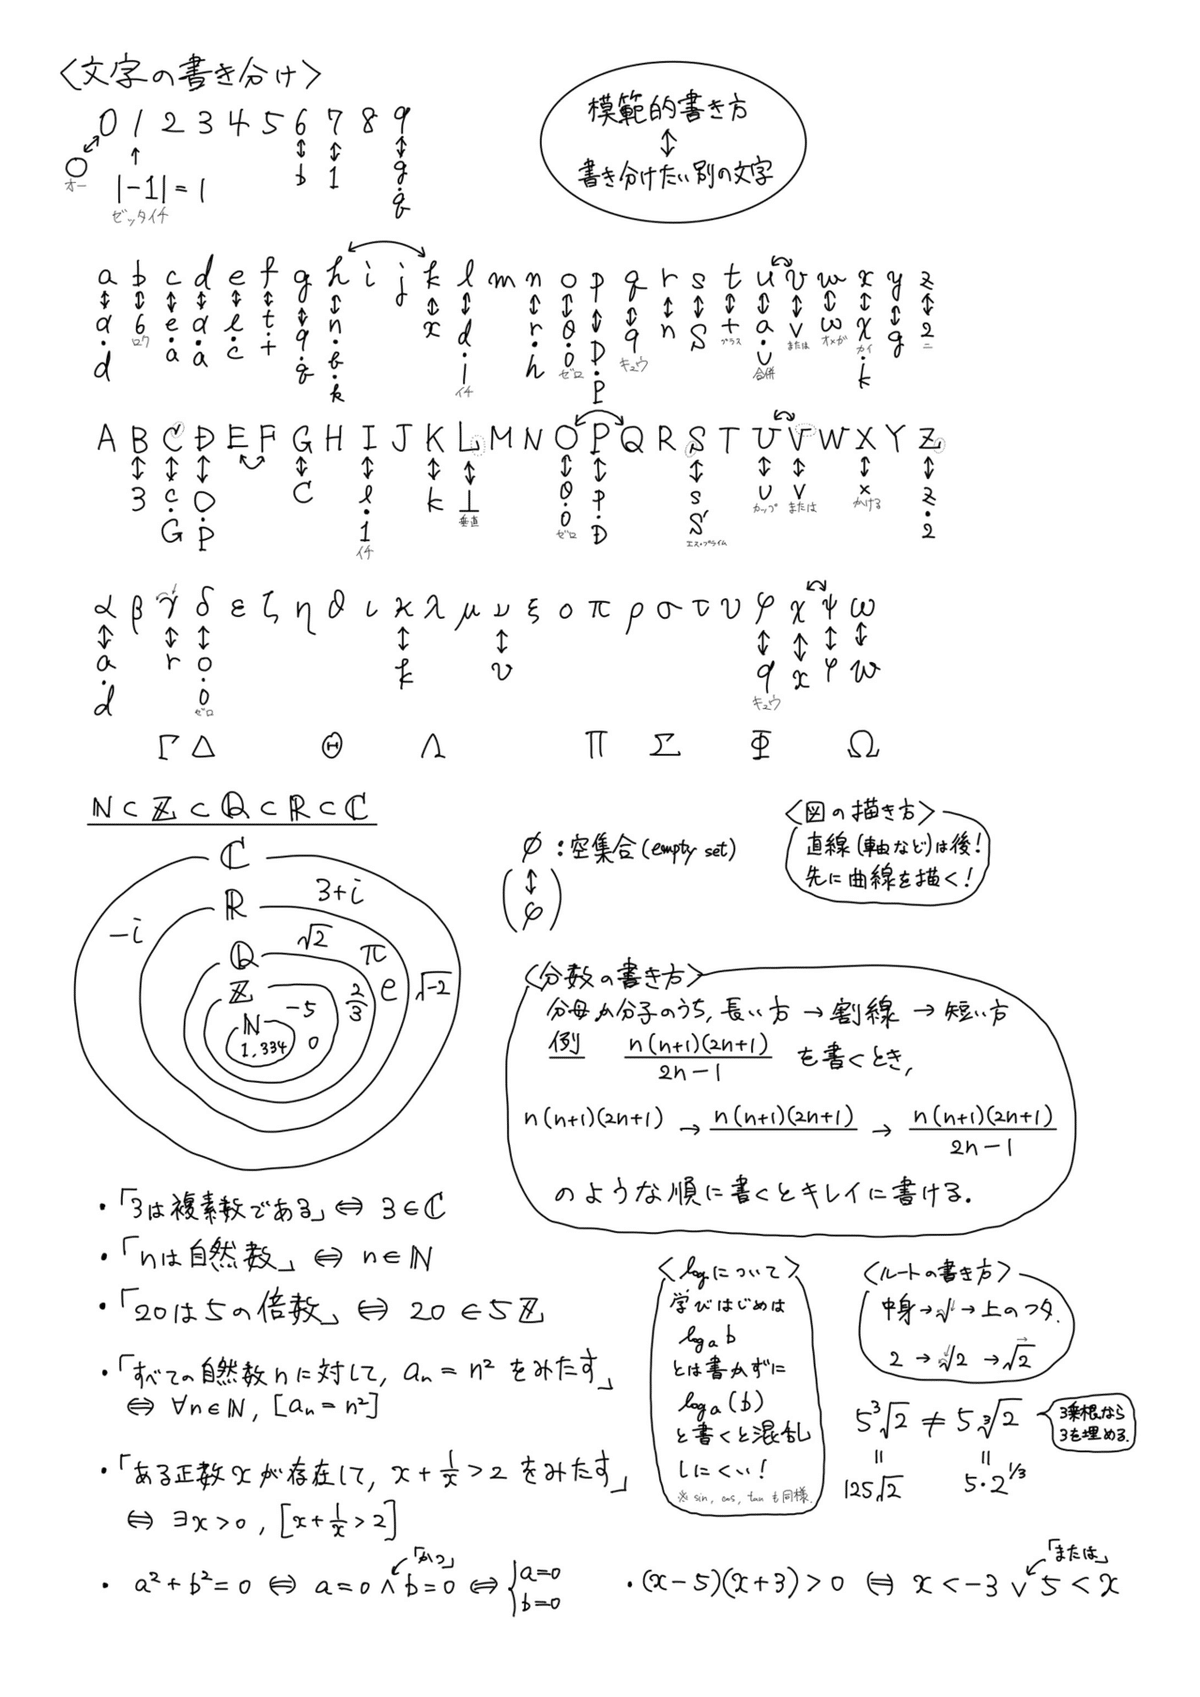 〈文字の書き分け〉
0 1 2 3 4 5 6 7 8 9
↔ ↑ ↕ ↕ ↕
O b 1 g・q
オー
|-1| = 1
ゼッタイチ
模範的書き方
↕
書き分けたい別の文字
a b c d e f g h i j k l m n o p q r s t u v w x y z
↕ ↕ ↕ ↕ ↕ ↕ ↕ ↕ ↕ ↕ ↕ ↕ ↕ ↕ ↕ ↕ ↕ ↕ ↕ ↕ ↕ ↕ ↕
α 6 e a l t 9 n x d r 0 D 9 n S + a v ω χ g 2
ロク キュウ プラス または オメガ カイ ニ
d a a c + q k l h 0 P ∪ k
イチ ゼロ 合併
A B C D E F G H I J K L M N O P Q R S T U V W X Y Z
↕ ↕ ↕ ↕ ↕ ↕ ↕ ↕ ↕ ↕ ↕ ↕ ↕ ↕ ↕
3 c O C l k ⊥ θ p s ∪ ∨ × z
垂直 カップ または かける
G P 1 0 D S′ 2
イチ ゼロ エス・プライム
α β γ δ ε ζ η θ ι κ λ μ ν ξ ο π ρ σ τ υ φ χ ψ ω
↕ ↕ ↕ ↕ ↕ ↕ ↕ ↕ ↕
a r o k v q x φ w
d 0 キュウ
ゼロ
Γ Δ Θ Λ Π Σ Φ Ω
ℕ ⊂ ℤ ⊂ ℚ ⊂ ℝ ⊂ ℂ
ℂ
ℝ 3+i
-i
ℚ √2 π
ℤ 2/3 e √-2
ℕ -5
1, 334 0
∅ : 空集合 (empty set)
↕
φ
〈図の描き方〉
直線 (軸など)は後!
先に曲線を描く!
〈分数の書き方〉
分母か分子のうち, 長い方 → 割線 → 短い方
例 n(n+1)(2n+1)/2n-1 を書くとき,
n(n+1)(2n+1) → n(n+1)(2n+1) → n(n+1)(2n+1)/2n-1
のような順に書くとキレイに書ける.
・「3は複素数である」⇔ 3∈ℂ
・「nは自然数」⇔ n∈ℕ
・「20は5の倍数」⇔ 20 ∈ 5ℤ
・「すべての自然数nに対して, aₙ = n² をみたす」
⇔ ∀n∈ℕ, [aₙ = n²]
・「ある正数xが存在して, x + 1/x > 2 をみたす」
⇔ ∃x>0, [x + 1/x > 2]
〈logについて〉
学びはじめは
logₐ b
とは書かずに
logₐ(b)
と書くと混乱
しにくい!
※ sin, cos, tan も同様.
〈ルートの書き方〉
中身→√→上のフタ.
2 → √2 → √2
5³√2 ≠ 5 ³√2
3乗根なら
3を埋める.
= =
125√2 5・2^1/3
「かつ」
・ a²+b²=0 ⇔ a=0 ∧ b=0 ⇔ { a=0
b=0
「または」
・(x-5)(x+3)>0 ⇔ x<-3 ∨ 5<x